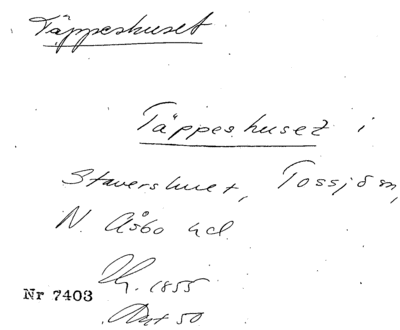 Täppeshuset
Täppeshuset i
Stavershuet, Tossjöm,
N. Åsbo hd.
1855
Nr 7403
50